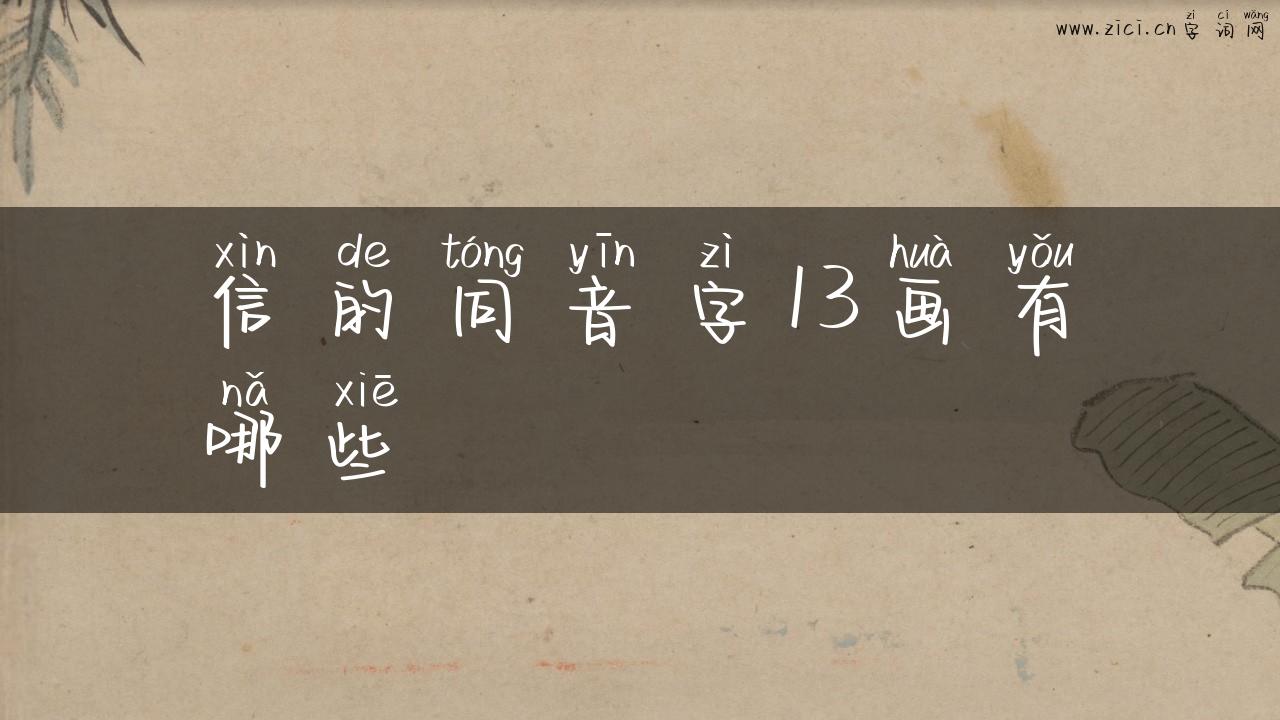 zì cí wǎng
www.zici.cn 字 词 网
xìn de tóng yīn zì huà yǒu
信 的 同 音 字 13 画 有
nǎ xiē
哪 些